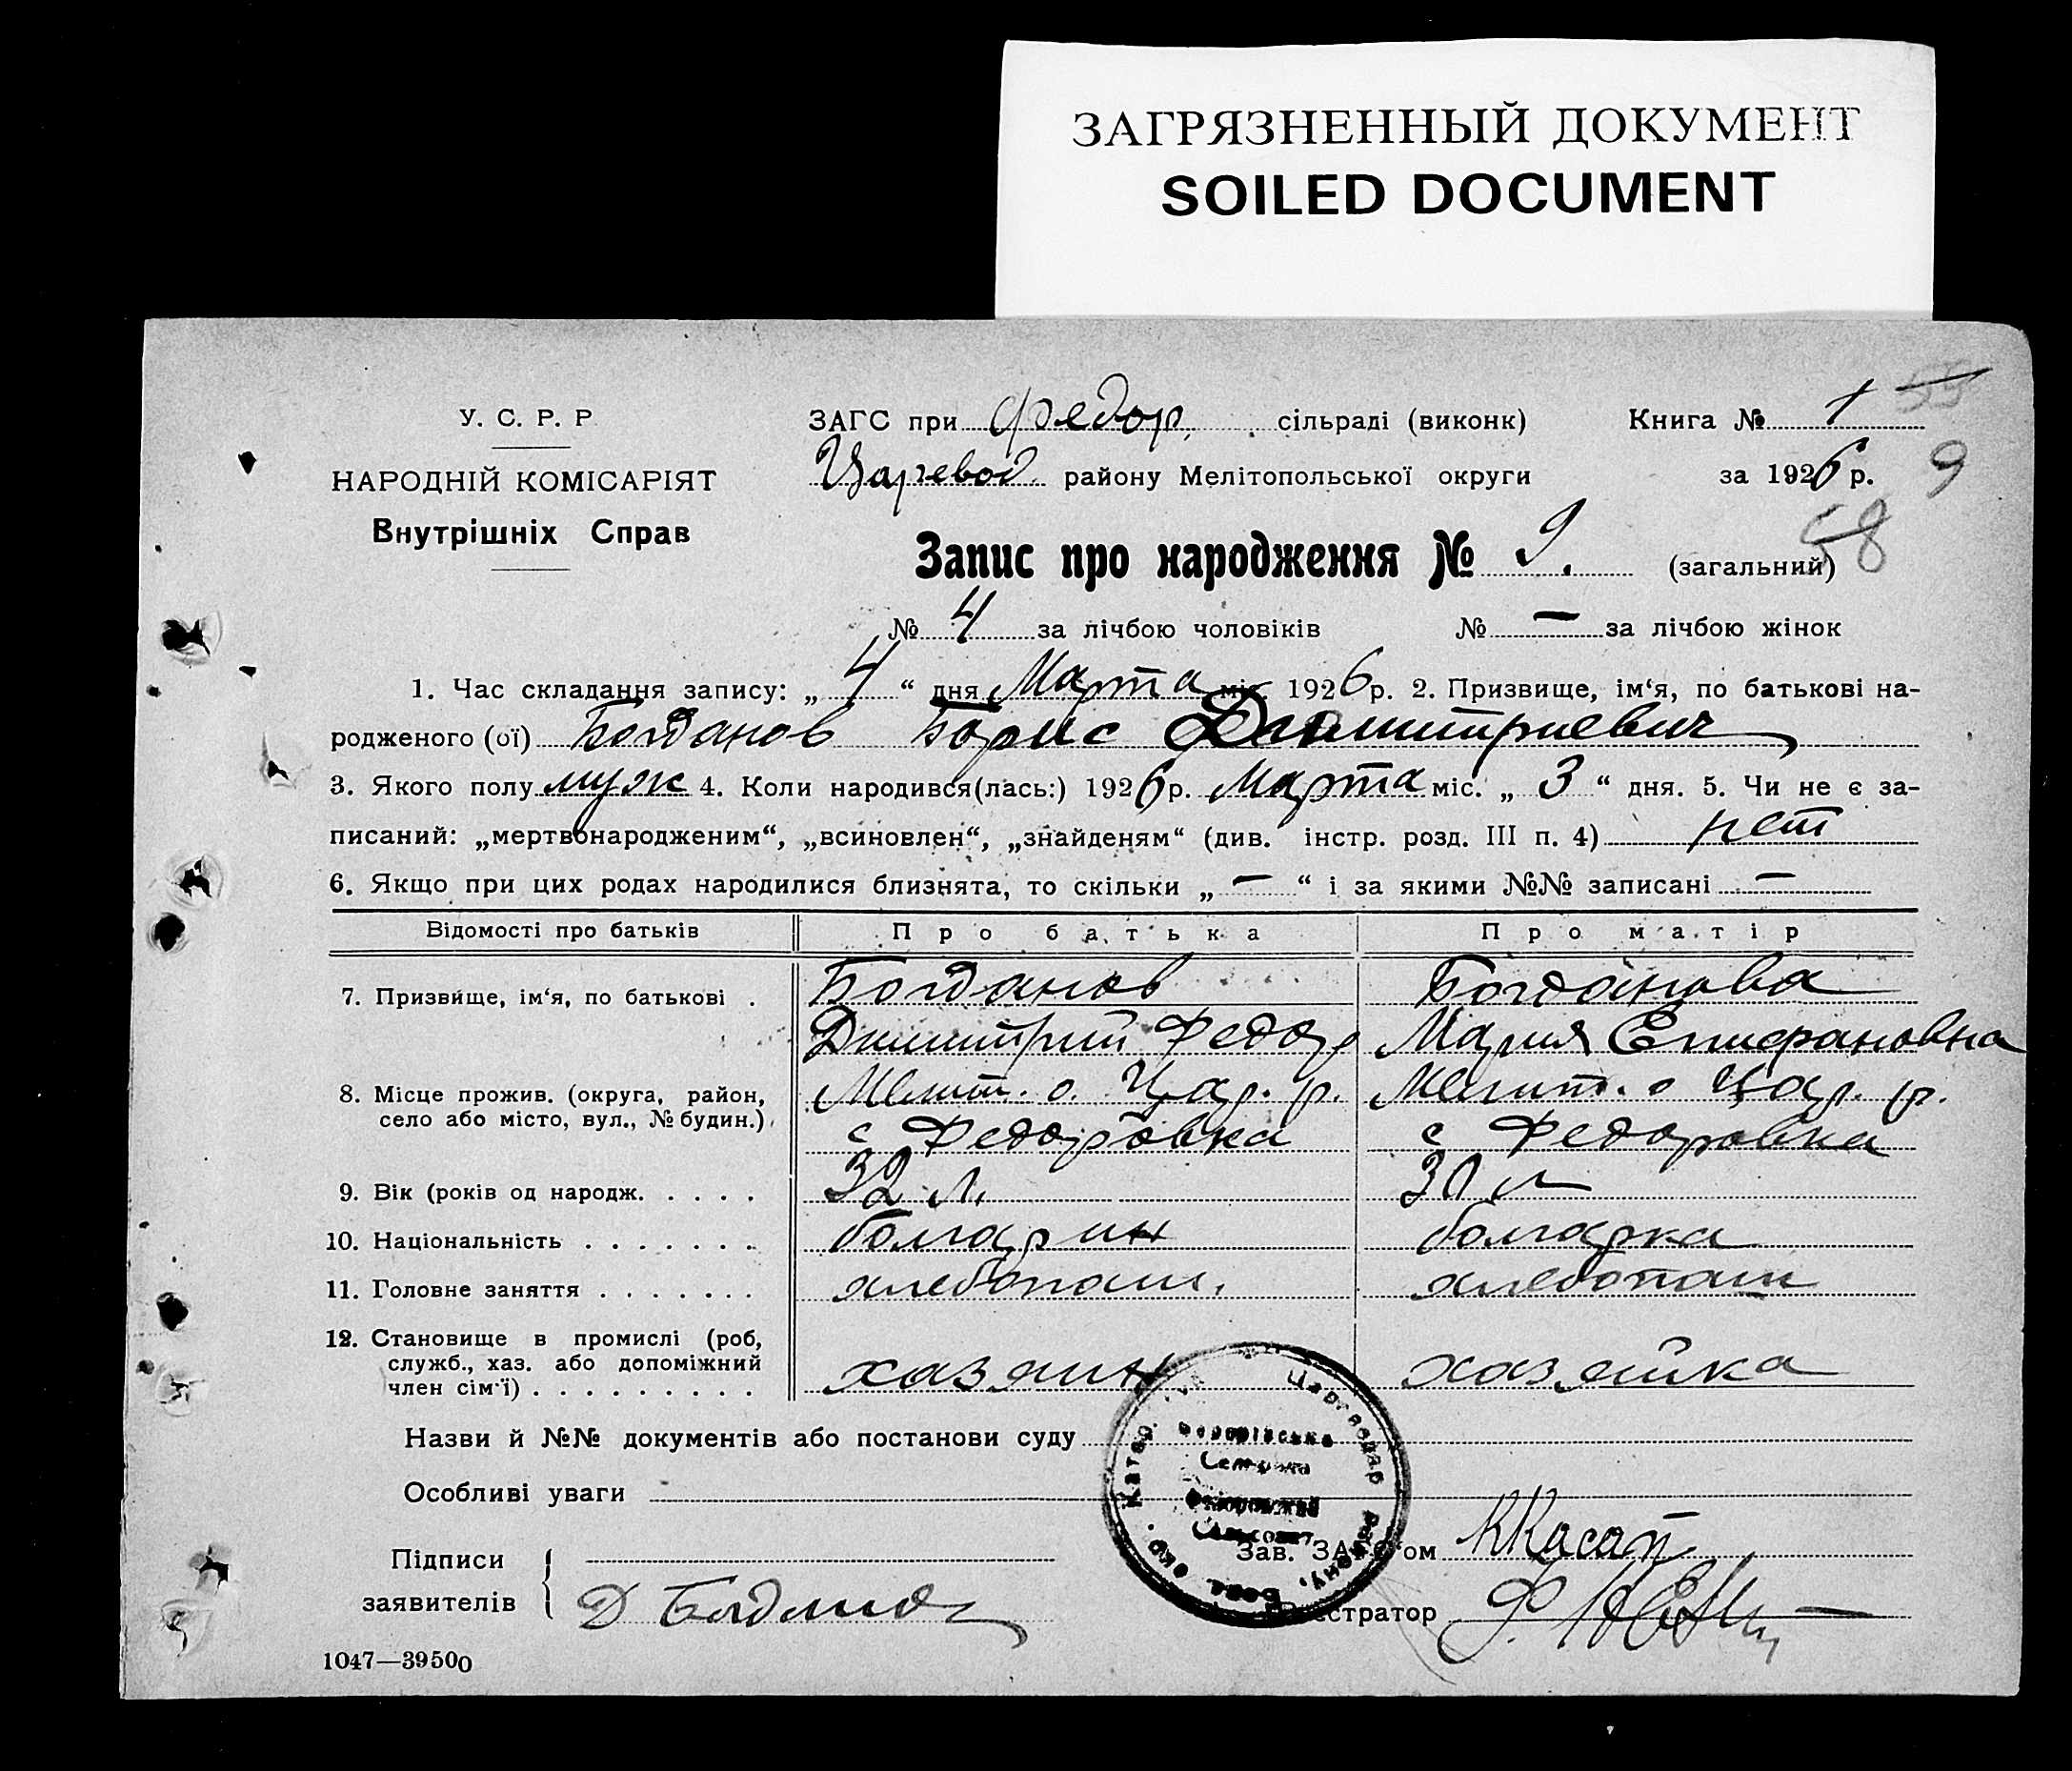 ЗАГРЯЗНЕННЫЙ ДОКУМЕНТ
SOILED DOCUMENT
У. С. Р. Р.
НАРОДНІЙ КОМІСАРІЯТ
Внутрішніх Справ
ЗАГС при Федор. сільраді (виконк) Книга № 1 55
Царевод. району Мелітопольської округи за 1926 р. 9
Запис про народження № 9. (загальний) 58
№ 4 за лічбою чоловіків № — за лічбою жінок
1. Час складання запису: „ 4 “ дня Марта міс. 1926 р. 2. Призвище, ім‘я, по батькові на-
родженого (ої) Богданов Борис Димитриевич
3. Якого полу муж 4. Коли народився(лась:) 1926 р. Марта міс. „ 3 “ дня. 5. Чи не є за-
писаний: „мертвонародженим“, „всиновлен“, „знайденям“ (див. інстр. розд. III п. 4) нет
6. Якщо при цих родах народилися близнята, то скільки „ — “ і за якими №№ записані —
Відомості про батьків Про батька Про матір
7. Призвище, ім‘я, по батькові . Богданов Богданова
Димитрий Федор Мария Епифановна
8. Місце прожив. (округа, район, Мелит. о. Цар. р. Мелит. о Цар. р.
село або місто, вул., № будин.) с Федоровка с Федоровка
9. Вік (років од народж. . . . . 32 л. 30 л
10. Національність . . . . . . . болгарин болгарка
11. Головне заняття . . . . . . . хлебопаш. хлебопаш
12. Становище в промислі (роб,
служб., хаз. або допоміжний хазяин хазяйка
член сім‘ї) . . . . . . . . .
Назви й №№ документів або постанови суду
Особливі уваги
Підписи Зав. ЗАГС‘ом ККасап
заявителів Д Богданов Реєстратор Ф.
1047—39500